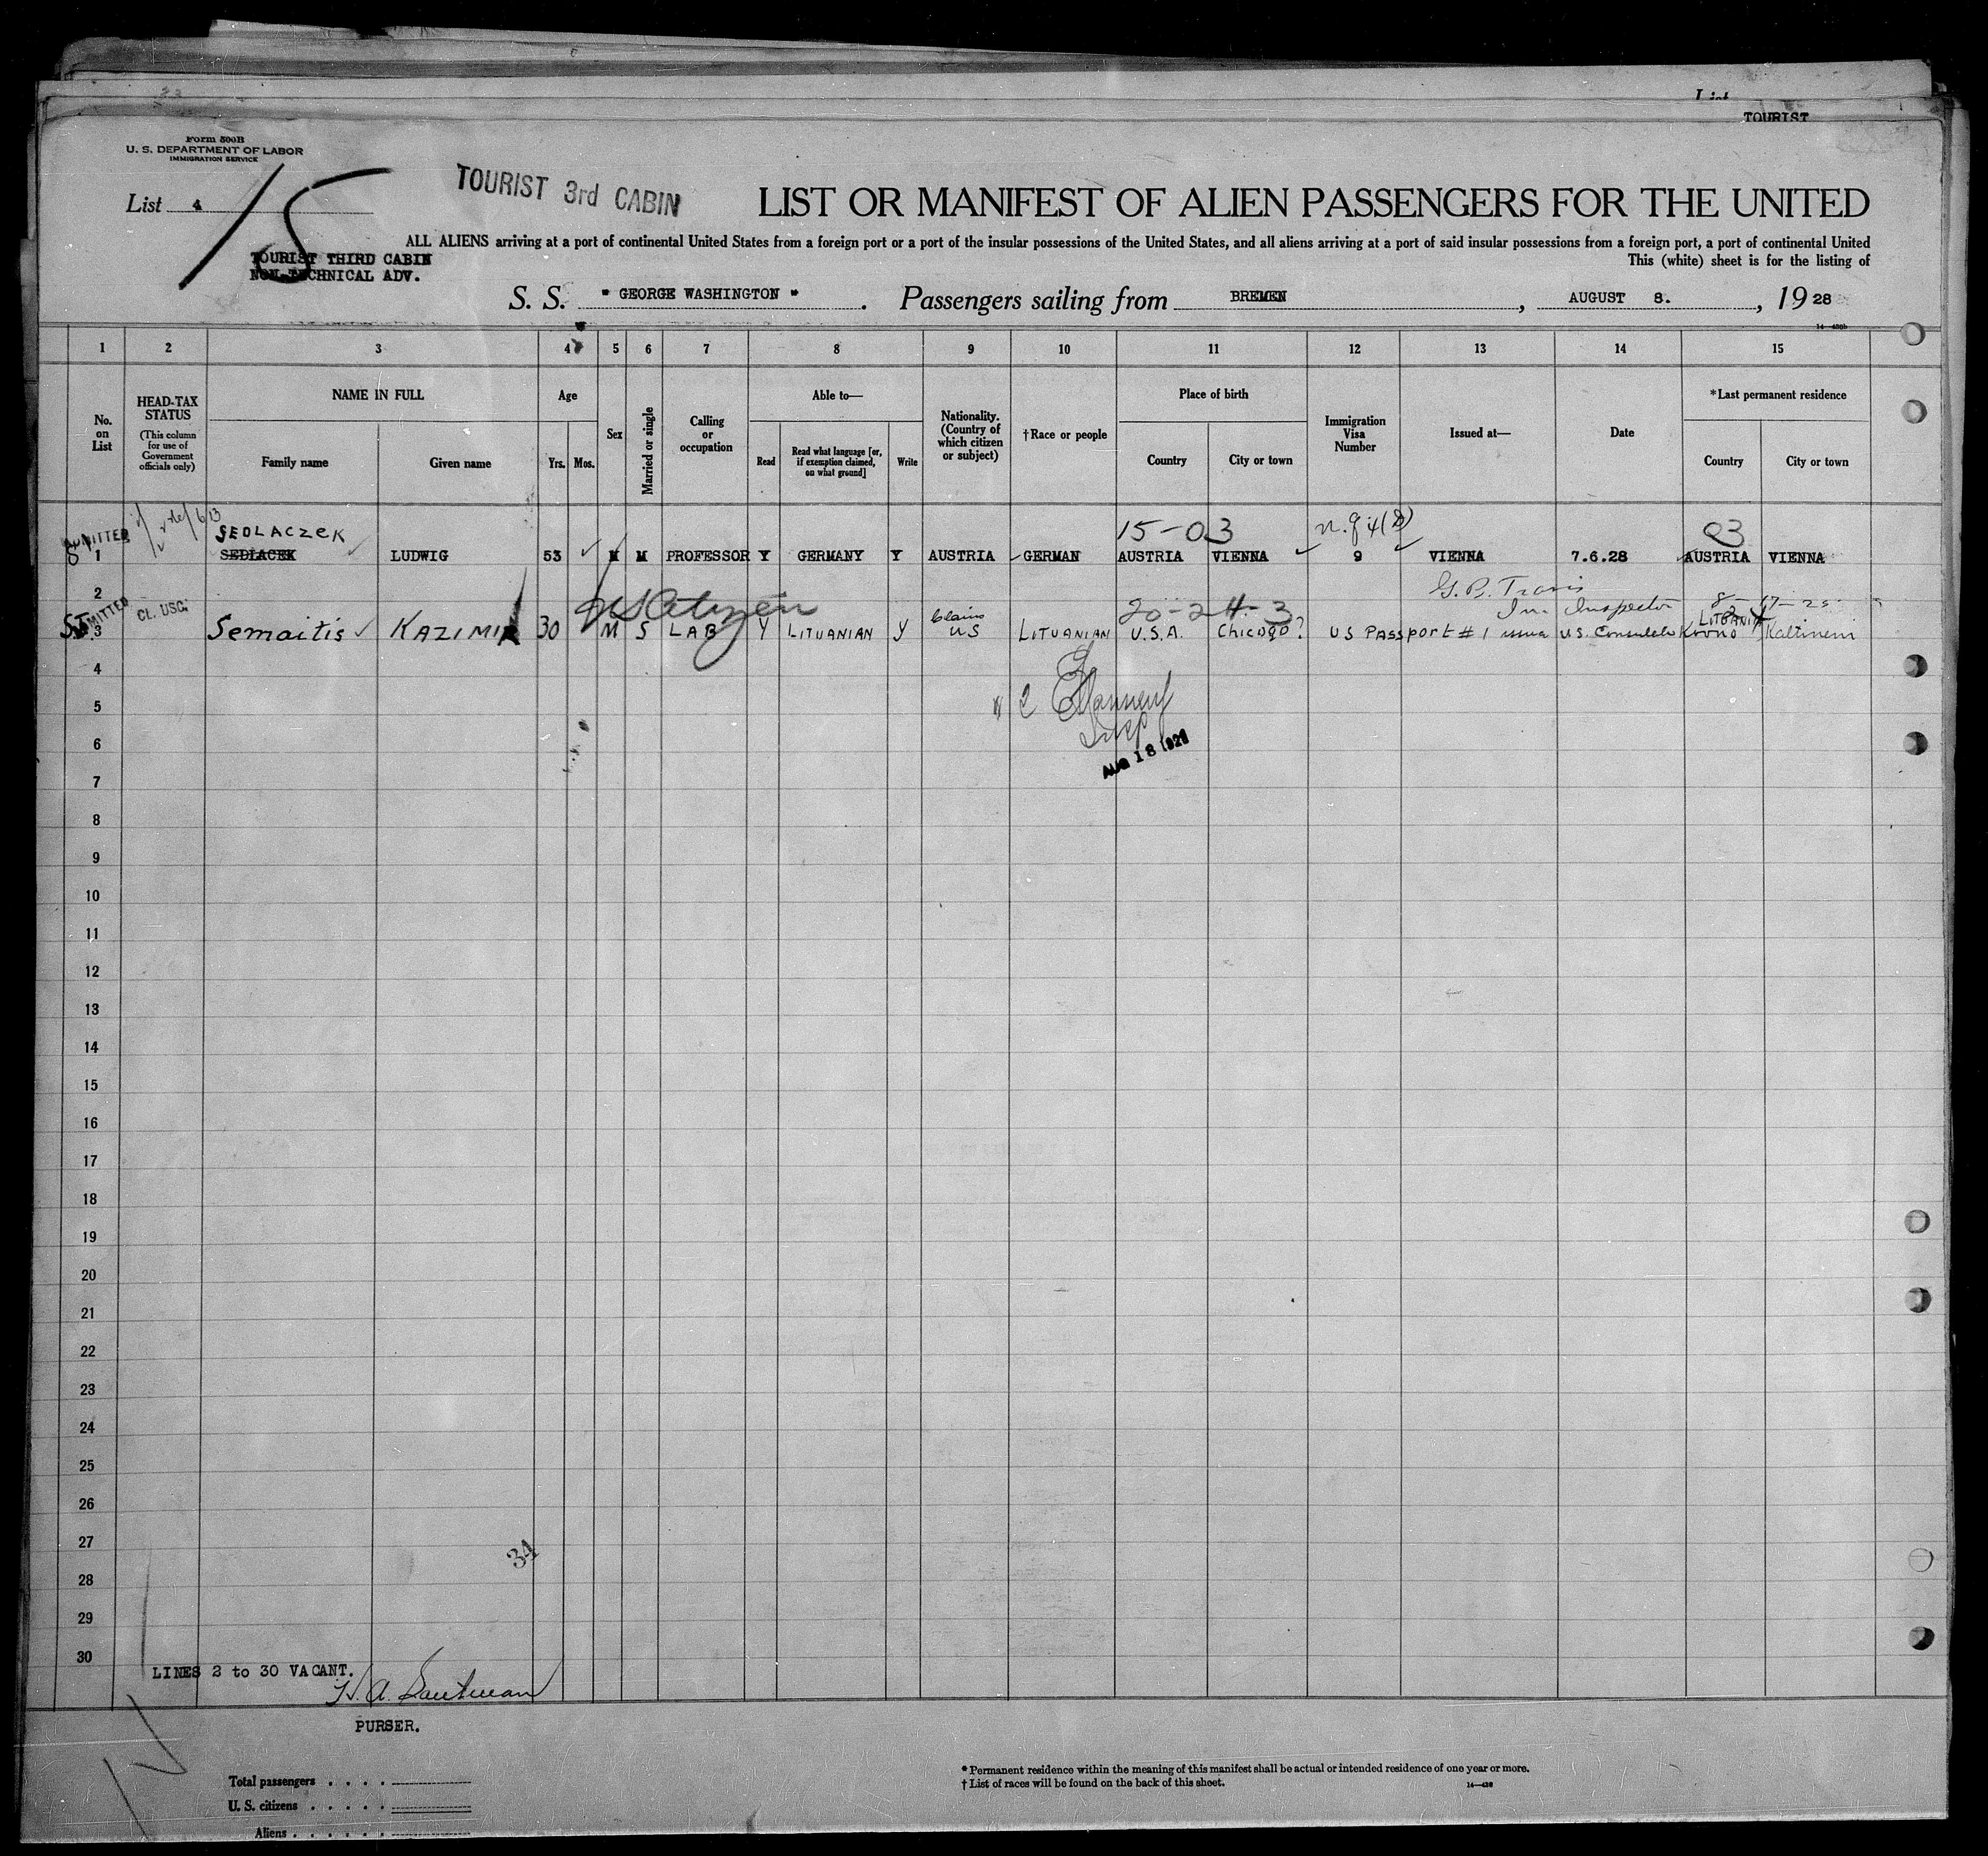 List
TOURIST
Form 500B
U. S. DEPARTMENT OF LABOR
IMMIGRATION SERVICE
List 4
15
TOURIST 3rd CABIN
LIST OR MANIFEST OF ALIEN PASSENGERS FOR THE UNITED
ALL ALIENS arriving at a port of continental United States from a foreign port or a port of the insular possessions of the United States, and all aliens arriving at a port of said insular possessions from a foreign port, a port of continental United
This (white) sheet is for the listing of
TOURIST THIRD CABIN
NON-TECHNICAL ADV.
S. S. " GEORGE WASHINGTON " . Passengers sailing from BREMEN , AUGUST 8. , 19 28
1 2 3 4 5 6 7 8 9 10 11 12 13 14 15
No. on List
HEAD-TAX STATUS (This column for use of Government officials only)
NAME IN FULL
Family name Given name
Age
Yrs. Mos.
Sex
Married or single
Calling or occupation
Able to—
Read Read what language [or, if exemption claimed, on what ground] Write
Nationality. (Country of which citizen or subject)
†Race or people
Place of birth
Country City or town
Immigration Visa Number
Issued at—
Date
*Last permanent residence
Country City or town
ADMITTED
SEDLACZEK 15-03 03
1 SEDLACEK LUDWIG 53 M M PROFESSOR Y GERMANY Y AUSTRIA GERMAN AUSTRIA VIENNA 9 VIENNA 7.6.28 AUSTRIA VIENNA
2
G. B. Travis
Im. Inspector
ADMITTED CL. USC. US Citizen
3 Semaitis KAZIMIR 30 M S LAB Y LITUANIAN Y Claims US LITUANIAN U.S.A. Chicago? US PASSport # 1 issued U.S. Consulate Kovno LITUANIA Kaltineni
4
5
6
AUG 18 1928
7
8
9
10
11
12
13
14
15
16
17
18
19
20
21
22
23
24
25
26
27
34
28
29
30
LINES 2 to 30 VACANT.
PURSER.
Total passengers
U. S. citizens
Aliens
* Permanent residence within the meaning of this manifest shall be actual or intended residence of one year or more.
† List of races will be found on the back of this sheet.